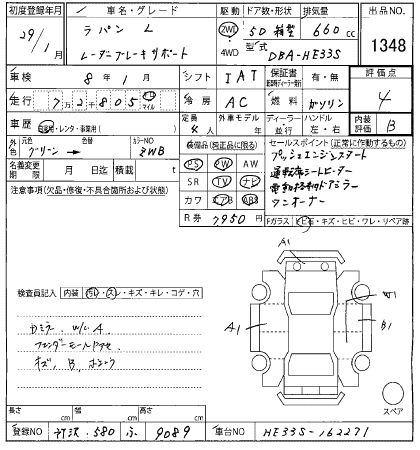 初度登録年月 車名・グレード 駆動 ドア数・形状 排気量 出品NO.
29/1月 ラパン L 2WD 5D 箱型 660cc
レーダーブレーキサポート 4WD 型式 DBA-HE33S 1348
車検 8年 1月 シフト IAT 保証書 有・無 評価点
走行 7万2千805 キロ マイル 冷房 AC 燃料 ガソリン 4
車歴 自家用・レンタ・事業用( ) 定員 4人 外車モデル ディーラー 並行 ハンドル 左・右 内装評価 B
外色 元色 グリーン 色替→ カラーNO ZWB 装備品(純正品に限る) セールスポイント(正常に作動するもの)
名義変更期限 月 日迄 積載 t PS PW AW プッシュエンジンスタート
注意事項(欠品・修復・不具合箇所および状態) SR TV ナビ 運転席シートヒーター
カワ エアB ABS 電動格納ドアミラー
ワンオーナー
R券 7,950円 Fガラス ヒビ石・キズ・ヒビ・ワレ・リペア跡
検査員記入 内装 汚レ・スレ・キズ・キレ・コゲ・穴
カミラー W/C A.
キズ, B,
A1
A1
W1
B1
スペア
長さ cm 幅 cm 高さ cm
登録NO 所沢 580 ふ 9089 車台NO HE33S-162271